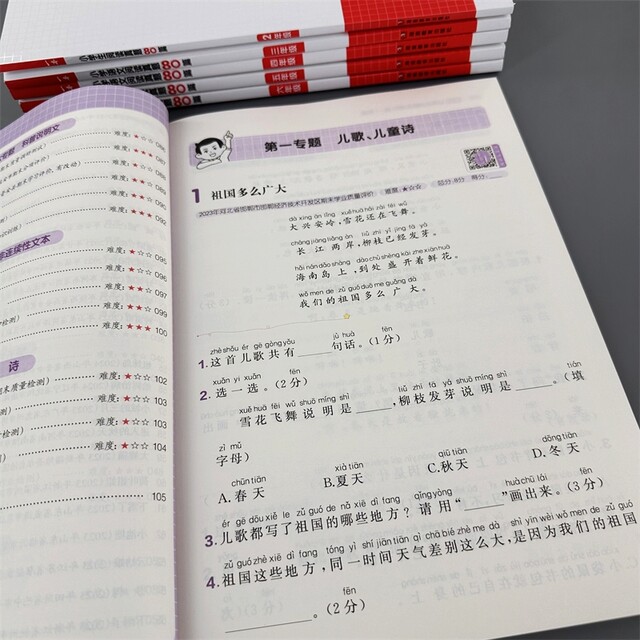 小学语文阅读真题80篇
2年级
三年级
四年级
五年级
六年级
科普说明文
难度:★☆☆ 086
难度:★★★ 087
难度:★☆☆ 088
090
092
非连续性文本
难度:★☆☆ 095
难度:★☆☆ 096
难度:★☆☆ 097
难度:★★☆ 099
难度:★★★ 100
诗
难度:★☆☆ 102
难度:★☆☆ 103
难度:★☆☆ 103
难度:★☆☆ 104
105
第一专题 儿歌、儿童诗
1 祖国多么广大
2023年河北省邯郸市邯郸经济技术开发区期末学业质量评价 难度:★☆☆ 总分:8分 得分:
dà xīng ān lǐng xuě huā hái zài fēi wǔ
大兴安岭,雪花还在飞舞。
cháng jiāng liǎng àn liǔ zhī yǐ jīng fā yá
长江两岸,柳枝已经发芽。
hǎi nán dǎo shàng dào chù shèng kāi zhe xiān huā
海南岛上,到处盛开着鲜花。
wǒ men de zǔ guó duō me guǎng dà
我们的祖国多么广大。
zhè shǒu ér gē gòng yǒu jù huà fēn
1.这首儿歌共有____句话。(1分)
xuǎn yi xuǎn fēn
2.选一选。(2分)
xuě huā fēi wǔ shuō míng shì liǔ zhī fā yá shuō míng shì tián
雪花飞舞说明是____,柳枝发芽说明是____。(填
zì mǔ
字母)
chūn tiān xià tiān qiū tiān dōng tiān
A.春天 B.夏天 C.秋天 D.冬天
ér gē dōu xiě le zǔ guó de nǎ xiē dì fang qǐng yòng huà chū lái fēn
3.儿歌都写了祖国的哪些地方?请用“____”画出来。(3分)
zǔ guó zhè xiē dì fang tóng yī shí jiān tiān qì chā bié zhè me dà shì yīn wèi wǒ men de zǔ guó
4.祖国这些地方,同一时间天气差别这么大,是因为我们的祖国
fēn
____。(2分)